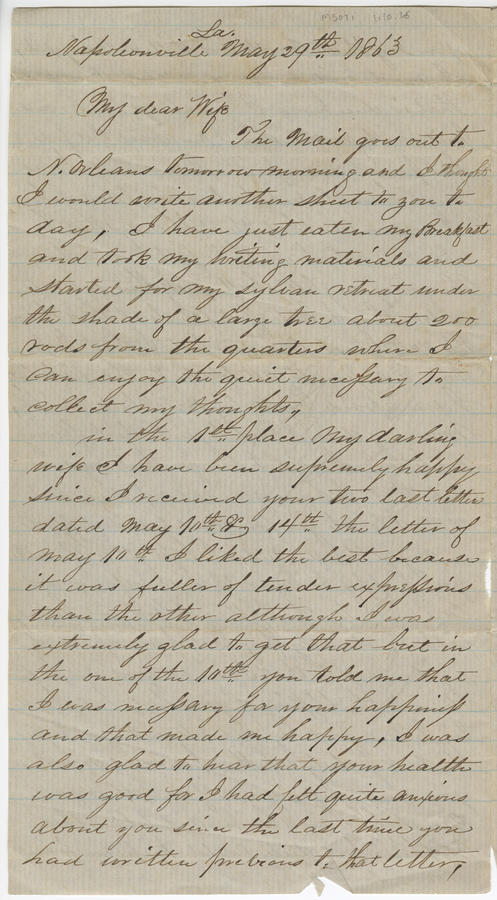 La.
Napoleonville May 29th 1863
My dear Wife
The Mail goes out to
N. Orleans tomorrow morning and I thought
I would write another sheet to you to
day, I have just eaten my Breakfast
and took my writing materials and
started for my sylvan retreat under
the shade of a large tree about 200
rods from the quarters where I
can enjoy the quiet necessary to
collect my thoughts,
in the 1st place My darling
wife I have been supremely happy
since I received your two last letters
dated May 10th & 14th the letter of
may 10th I liked the best because
it was fuller of tender expressions
than the other although I was
extremely glad to get that but in
the one of the 10th you told me that
I was necessary for your happiness
and that made me happy, I was
also glad to hear that your health
was good for I had felt quite anxious
about you since the last time you
had written previous to that letter,